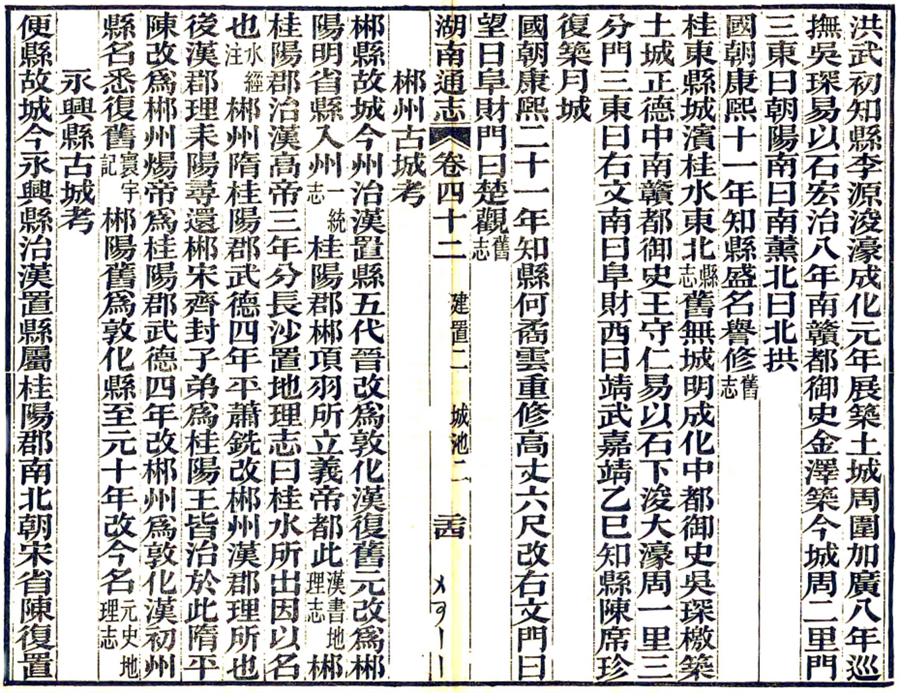 洪武初知縣李源浚濠成化元年展築土城周圍加廣八年巡
撫吳琛易以石宏治八年南贛都御史金澤築今城周二里門
三東曰朝陽南曰南薰北曰北拱
國朝康熙十一年知縣盛名譽修舊志
桂東縣城濱桂水東北縣志舊無城明成化中都御史吳琛檄築
土城正德中南贛都御史王守仁易以石下浚大濠周一里三
分門三東曰右文南曰阜財西曰靖武嘉靖乙巳知縣陳席珍
復築月城
國朝康熙二十一年知縣何喬雲重修高丈六尺改右文門曰
望日阜財門曰楚觀舊志
湖南通志 卷四十二 建置二 城池二
郴州古城考
郴縣故城今州治漢置縣五代晉改爲敦化漢復舊元改爲郴
陽明省縣入州一統志桂陽郡郴項羽所立義帝都此漢書地理志郴
桂陽郡治漢高帝三年分長沙置地理志曰桂水所出因以名
也水經注郴州隋桂陽郡武德四年平蕭銑改郴州漢郡理所也
後漢郡理耒陽尋還郴宋齊封子弟爲桂陽王皆治於此隋平
陳改爲郴州煬帝爲桂陽郡武德四年改郴州爲敦化漢初州
縣名悉復舊寰宇記郴陽舊爲敦化縣至元十年改今名元史地理志
永興縣古城考
便縣故城今永興縣治漢置縣屬桂陽郡南北朝宋省陳復置